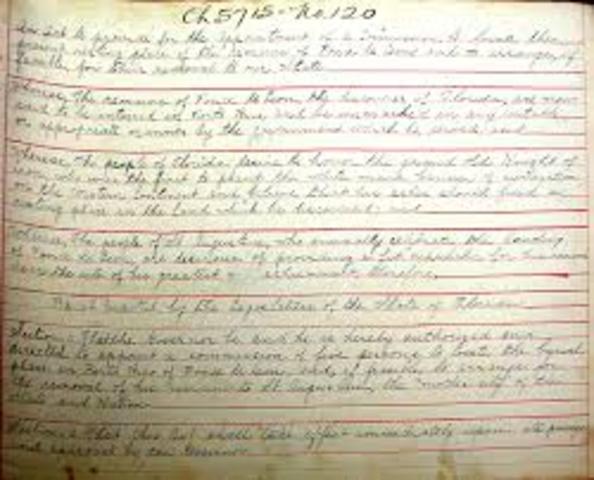 Ch 5715 - No. 120
An Act to provide for the appointment of a Commission to locate the
present resting place of the remains of Ponce de Leon and to arrange, if
possible, for their removal to our State
Whereas, The remains of Ponce de Leon, the discoverer of Florida, are now
said to be interred in Porto Rico and be unmarked in any suitable
or appropriate manner by the government which he served, and
Whereas, the people of Florida desire to honor the grand old Knight of
Leon, who was the first to plant the white man's banner of civilization
on the Western Continent and believe that his ashes should find a
resting place in the land which he discovered; and
Whereas, the people of St Augustine, who annually celebrate the landing
of Ponce de Leon, are desirous of providing a fit for his
the site of his greatest achievement, therefore,
Be it enacted by the Legislature of the State of Florida:
Section 1 That the Governor be and he is hereby authorized and
directed to appoint a commission of five persons to locate the burial
place in Porto Rico of Ponce de Leon and, if possible, to arrange for
the removal of his remains to St Augustine, the mother city of the
State and Nation
Section 2 That this Act shall take effect immediately upon its passage
and approval by the Governor